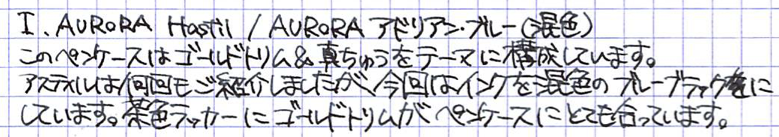 I. AURORA Hastil / AURORA アドリアン・ブルー(混色)
このペンケースはゴールドトリム&真ちゅうをテーマに構成しています。
アスティルは何回もご紹介しましたが、今回はインクを混色のブルーブラックに
しています。茶色ラッカーにゴールドトリムがペンケースにとても合っています。